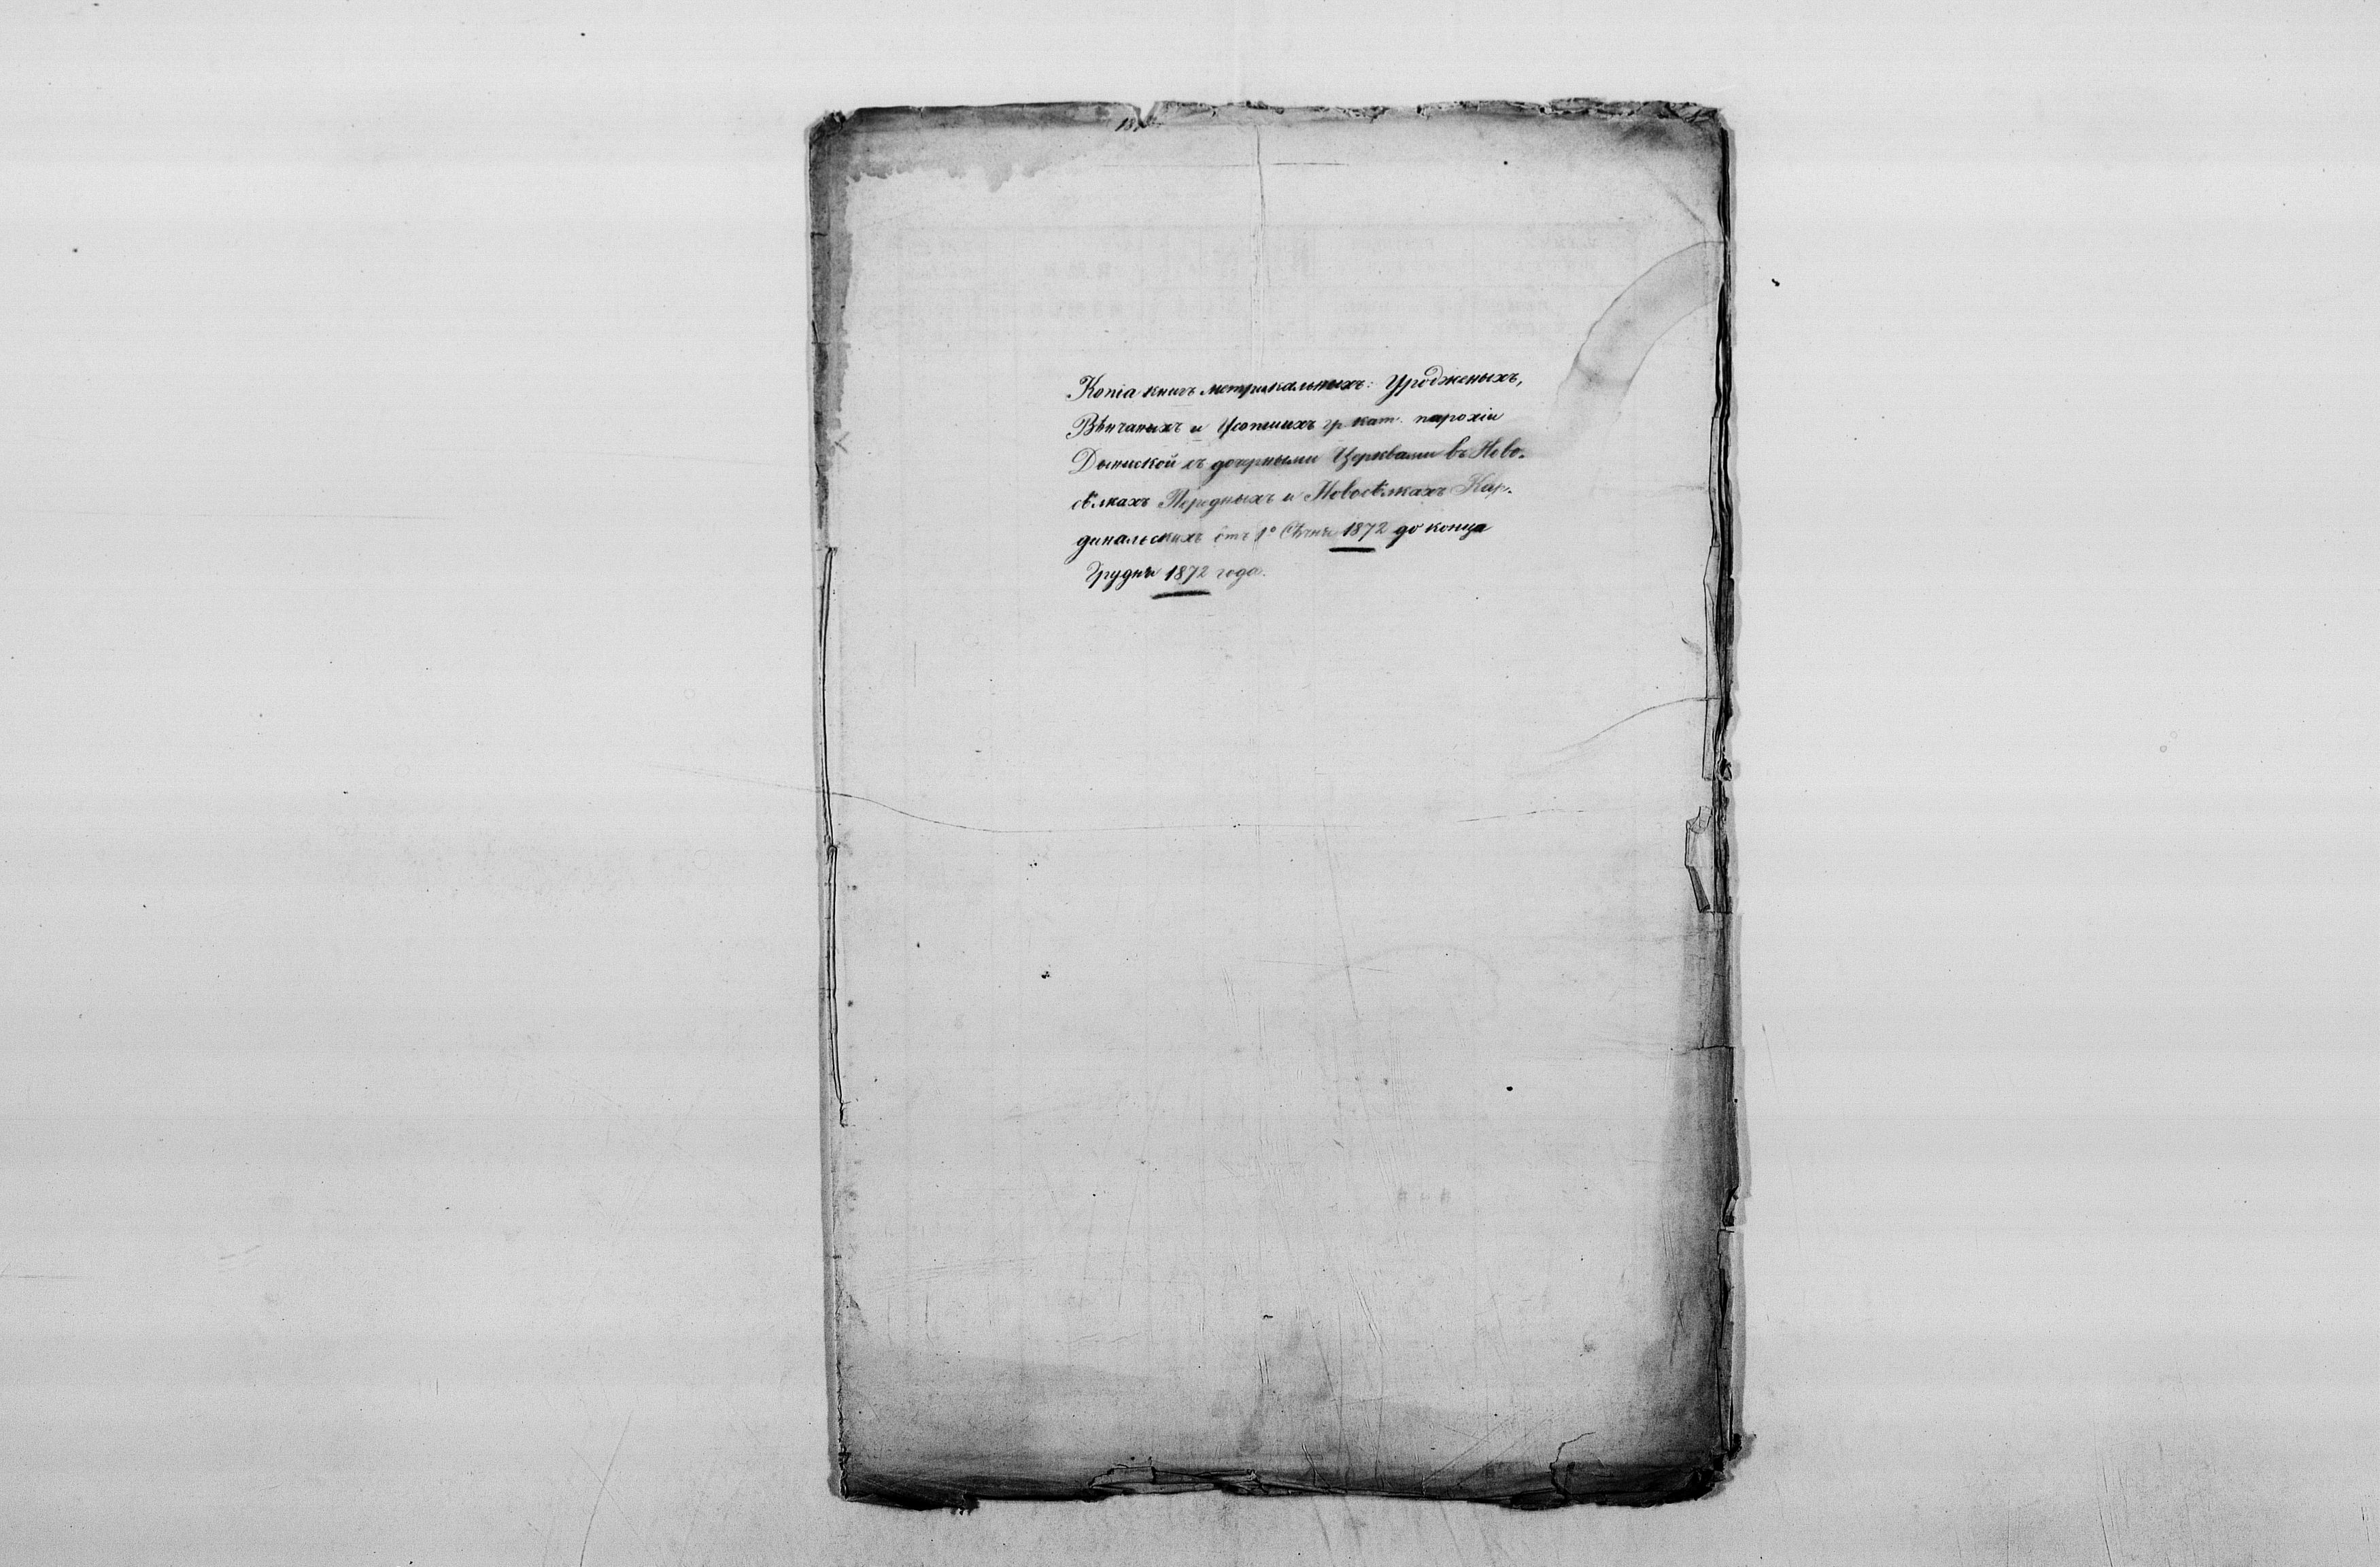 Копіа книгъ метрикальныхъ: Уродженыхъ,
Вѣнчаныхъ и Усопшихъ гр. кат. парохіи
Дыниской съ дочерными Церквами въ Ново-
сѣлкахъ Передныхъ и Новосѣлкахъ Кар-
динальскихъ отъ 1º Сѣчня 1872 до конца
Грудня 1872 года.